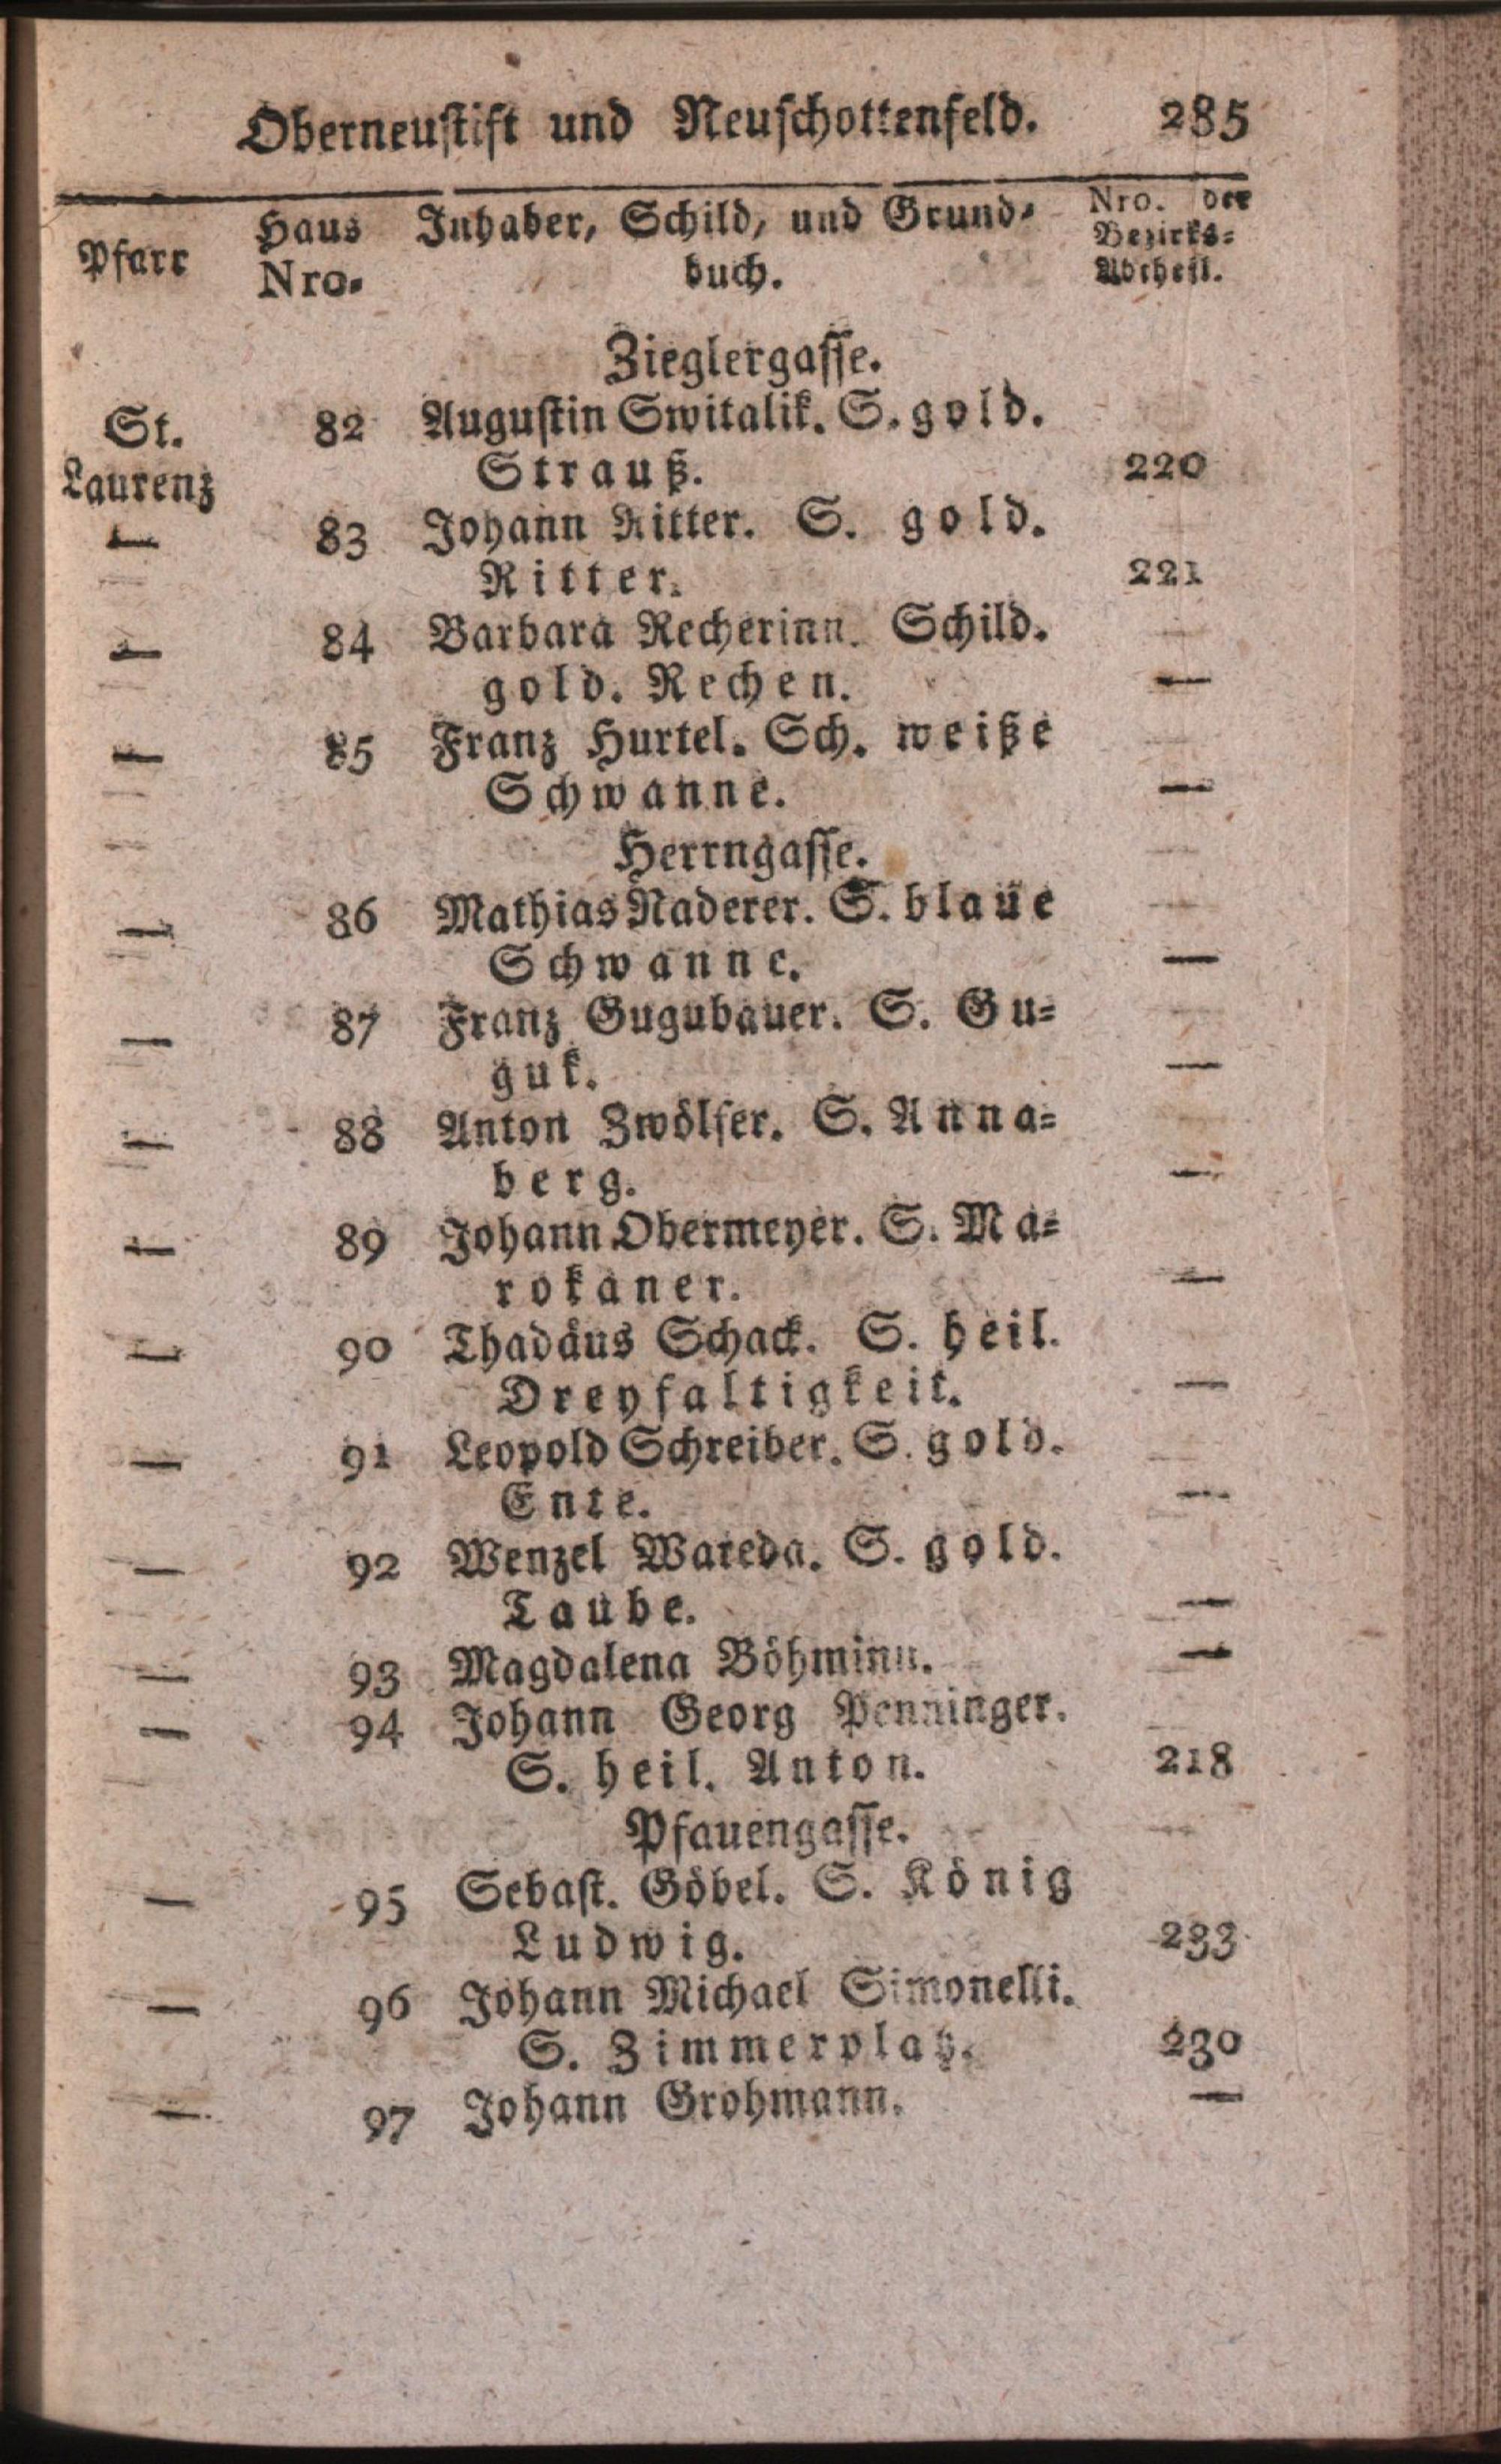 Oberneustift und Neuschottenfeld. 285
Pfarr Haus Nro. Inhaber, Schild, und Grund= buch. Nro. der Bezirks= Abtheil.
Zieglergasse.
St. 82 Augustin Switalik. S. gold.
Laurenz Strauß. 220
— 83 Johann Ritter. S. gold.
Ritter. 221
— 84 Barbara Recherinn. Schild.
gold. Rechen. —
— 85 Franz Hurtel. Sch. weiße
Schwanne. —
Herrngasse.
— 86 Mathias Naderer. S. blaue
Schwanne. —
— 87 Franz Gugubauer. S. Gu=
guk. —
— 88 Anton Zwölfer. S. Anna=
berg. —
— 89 Johann Obermeyer. S. Ma=
rokaner. —
— 90 Thadäus Schack. S. heil.
Dreyfaltigkeit. —
— 91 Leopold Schreiber. S. gold.
Ente. —
— 92 Wenzel Wateda. S. gold.
Taube. —
— 93 Magdalena Böhminn. —
— 94 Johann Georg Penninger.
S. heil. Anton. 218
Pfauengasse.
— 95 Sebast. Göbel. S. König
Ludwig. 233
— 96 Johann Michael Simonelli.
S. Zimmerplatz. 230
— 97 Johann Grohmann. —